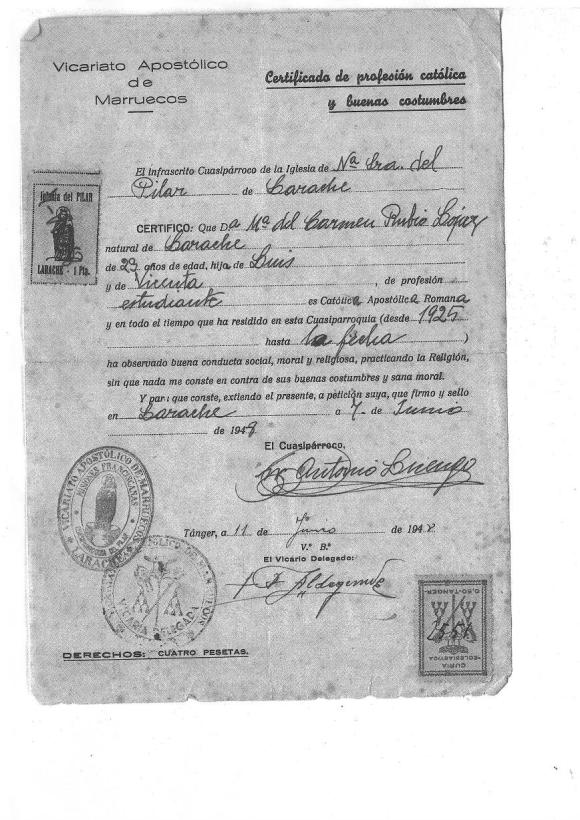 Vicariato Apostólico
de
Marruecos
Certificado de profesión católica
y buenas costumbres
El infrascrito Cuasipárroco de la Iglesia de Nª Sra. del
Pilar de Larache
Iglesia del PILAR
LARACHE - 1 Pta.
CERTIFICO: Que Dª Mª del Carmen Rubio López
natural de Larache
de 23 años de edad, hija de Luis
y de Vicenta, de profesión
estudiante es Católica Apostólica Romana
y en todo el tiempo que ha residido en esta Cuasiparroquia (desde 1925
hasta la fecha)
ha observado buena conducta social, moral y religiosa, practicando la Religión,
sin que nada me conste en contra de sus buenas costumbres y sana moral.
Y para que conste, extiendo el presente, a petición suya, que firmo y sello
en Larache a 7 de Junio
de 1948
El Cuasipárroco,
Fr Antonio Luengo
VICARIATO APOSTÓLICO DE MARRUECOS
MISIONES FRANCISCANAS
LARACHE
Tánger, a 11 de Junio de 1948
V.º B.º
El Vicario Delegado:
VICARIA DELEGADA
CURIA
ECLESIASTICA
TANGER
DERECHOS: CUATRO PESETAS.